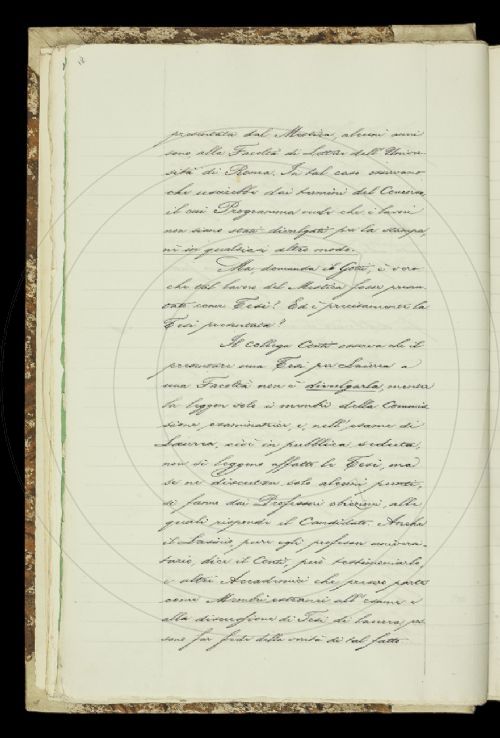 presentata dal Mestica, alcuni anni
sono, alla Facoltà di Lettere dell'Univer-
sità di Roma. In tal caso osservano
che uscirebbe dai termini del Concorso,
il cui Programma vuole che i lavori
non siano stati divulgati per la stampa
nè in qualsiasi altro modo.
Ma, domanda il Gotti, è vero
che tal lavoro del Mestica fosse presen-
tato come Tesi? Ed è precisamente la
Tesi presentata?
Il collega Conti osserva che il
presentare una Tesi per Laurea a
una Facoltà non è divulgarla, mentre
la leggon solo i membri della Commis-
sione esaminatrice, e, nell'esame di
Laurea, cioè in pubblica seduta,
non si leggono affatto le Tesi, ma
se ne discutono solo alcuni punti,
si fanno dai Professori obiezioni, alle
quali risponde il Candidato. Anche
il pure egli professore universi-
tario, dice il Conti, può testimoniarlo,
e altri Accademici che presero parte
come Membri estranei all'esame e
alla discussione di Tesi di laurea, pos-
sono far fede della verità di tal fatto.